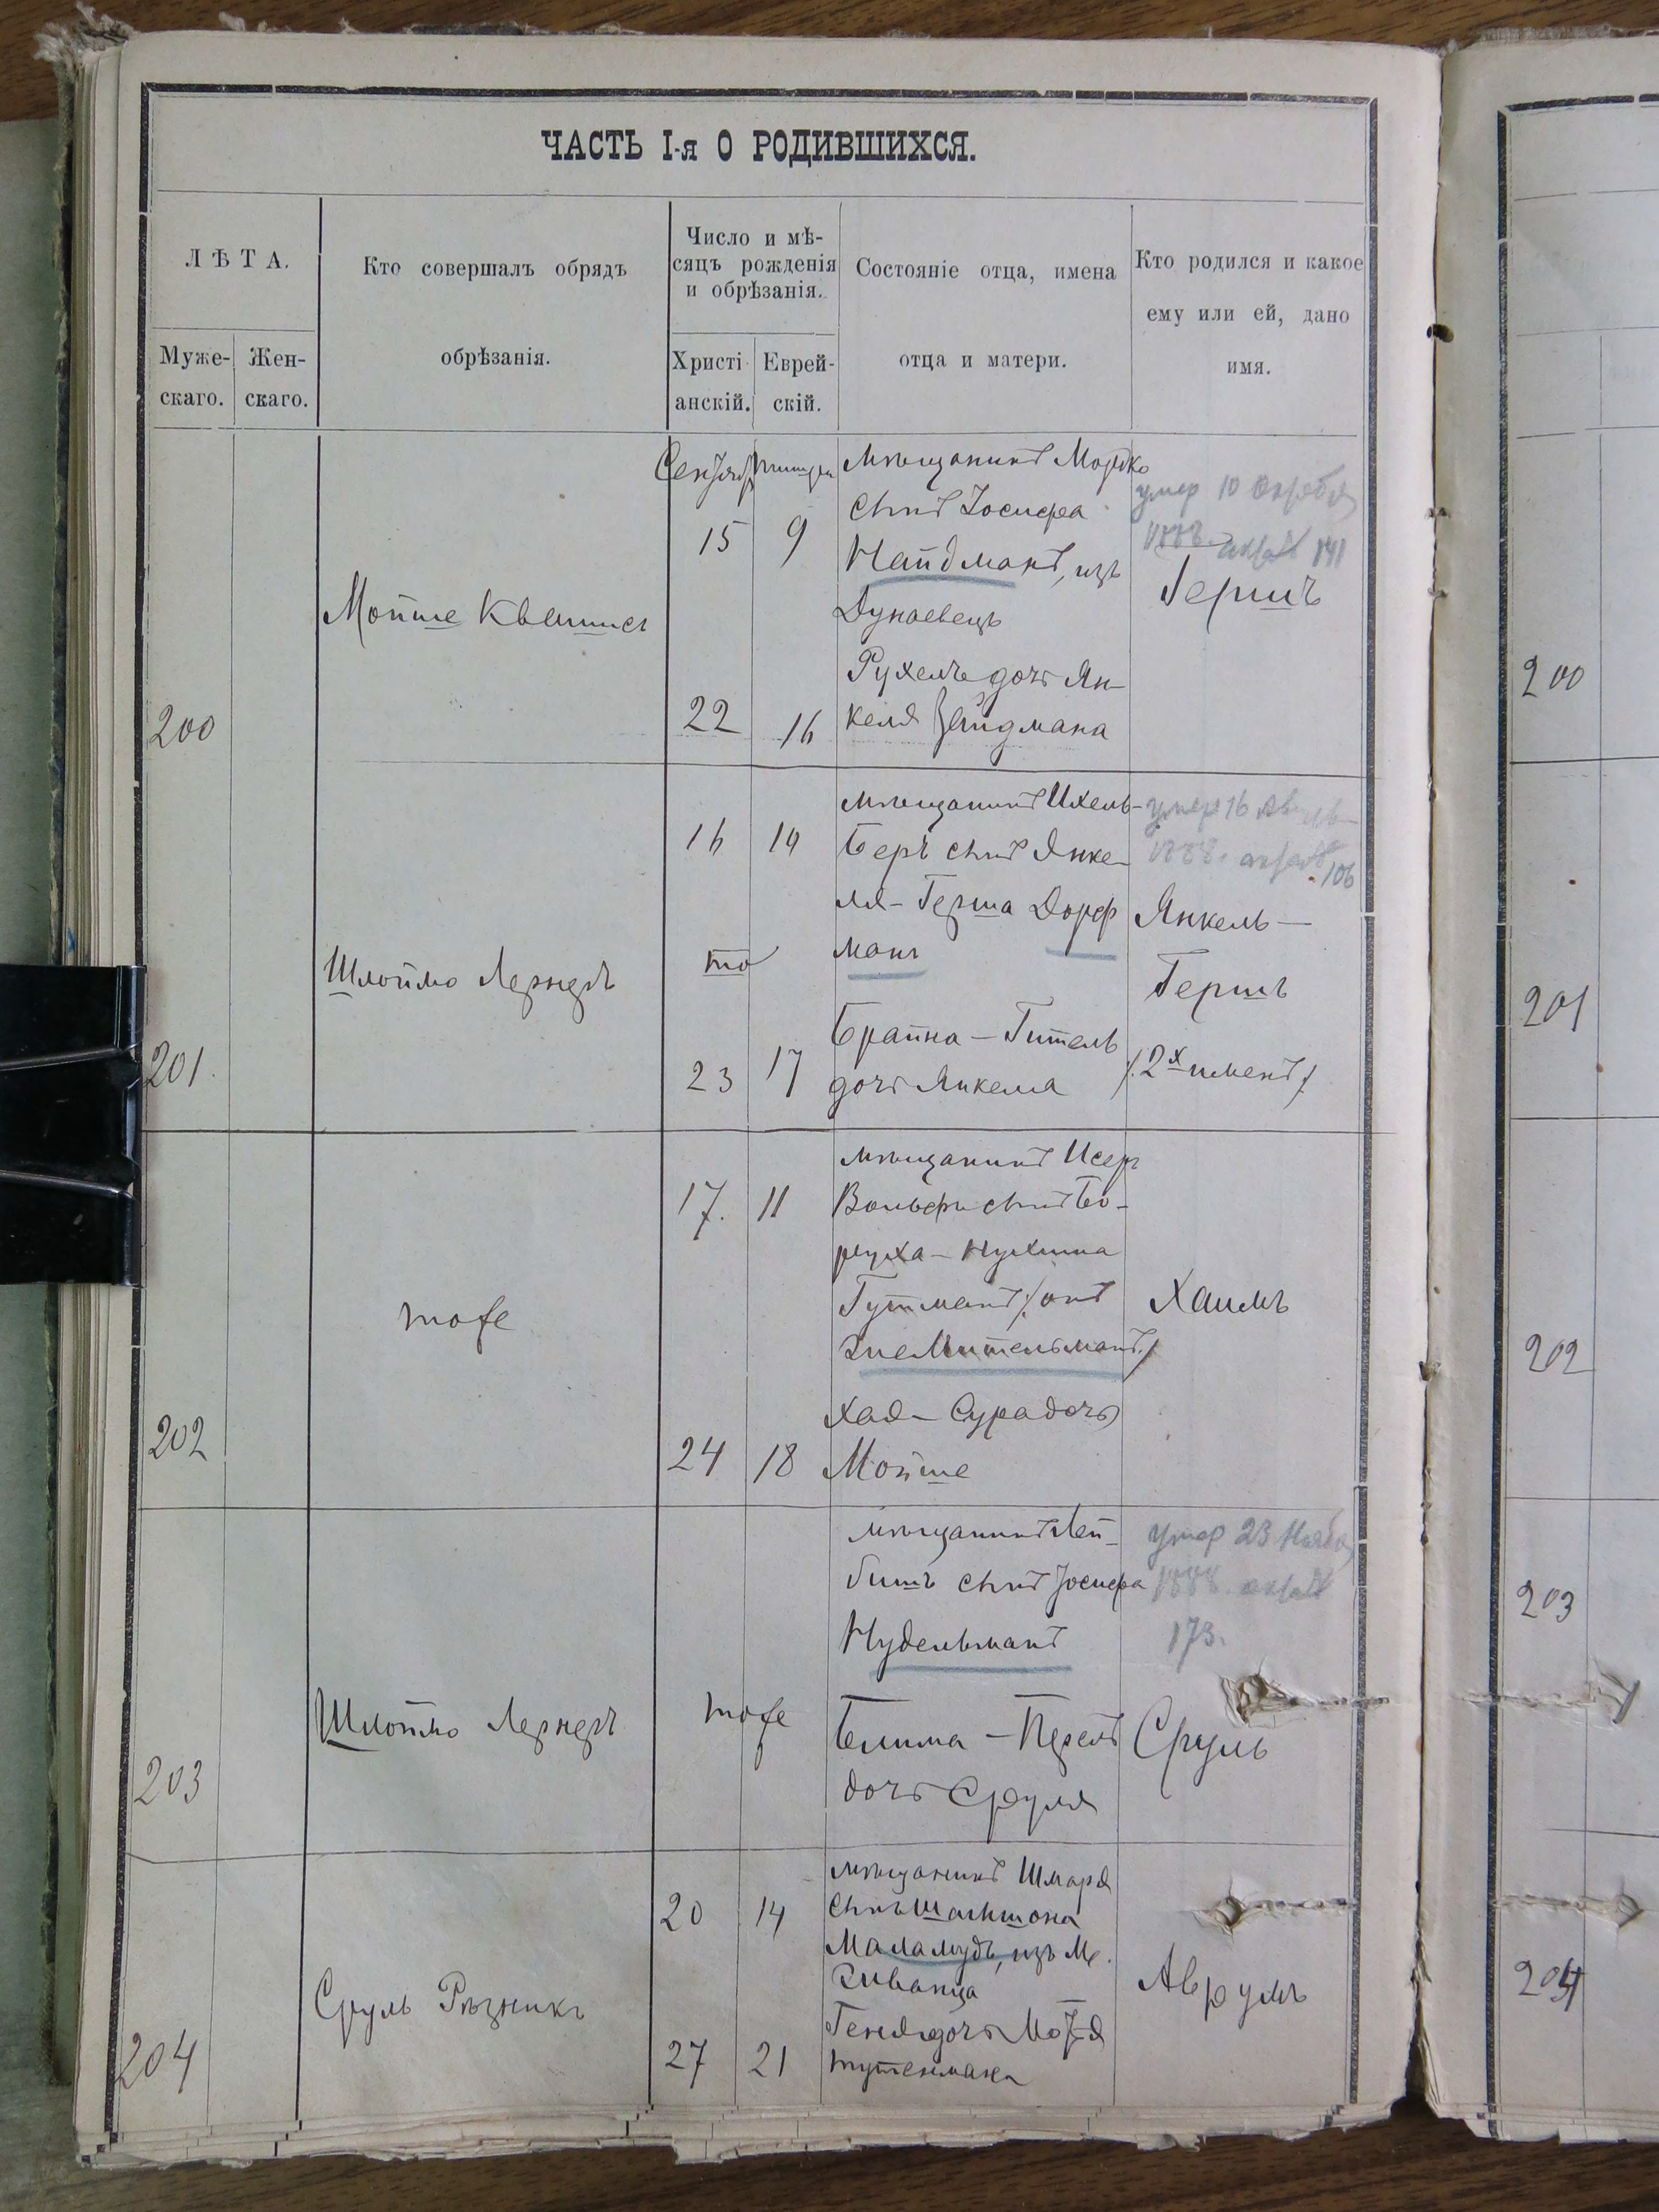 ЧАСТЬ I-я О РОДИВШИХСЯ.
ЛѢТА.
Муже-
скаго.
Жен-
скаго.
Кто совершалъ обрядъ
обрѣзанія.
Число и мѣ-
сяцъ рожденія
и обрѣзанія.
Христі
анскій.
Еврей-
скій.
Состояніе отца, имена
отца и матери.
Кто родился и какое
ему или ей, дано
имя.
200
Мойше
15
9
22
16
Мѣщанинъ Мошко
сынъ Іосифа
Найдманъ, изъ
Дунаевецъ
Рухель дочь Ян-
келя Зейдмана
умер 10 октября
1888 141
Гершъ
200
201.
Шлоймо Лернеръ
16
то
23
17
мѣщанинъ Ихель-
Беръ сынъ Янке-
ля-Герша Дорф
манъ
Брайна-Гитель
дочь Янкеля
умер 16
1888. 106
Янкель-
Гершъ
/:2х именъ:/
201
202
тоже
17.
11
24
18
мѣщанинъ Исеръ
Вольфъ сынъ Бо-
руха-Нухима
Гутманъ /:онъ
же Мительманъ:/
Хая-Сура дочь
Мойше
Хаимъ
202
203
Шлоймо Лернеръ
тоже
мѣщанинъ Лей-
бишъ сынъ Іосифа
Нудельманъ
Блима-Перель
дочь Сруля
умер 23 Ноября
1888
173.
Сруль
203
204
Сруль Рѣзникъ
20
14
27
21
мѣщанинъ Шмаря
сынъ
Маламудъ, изъ М.
Живанца
Геня дочь
Аврумъ
204